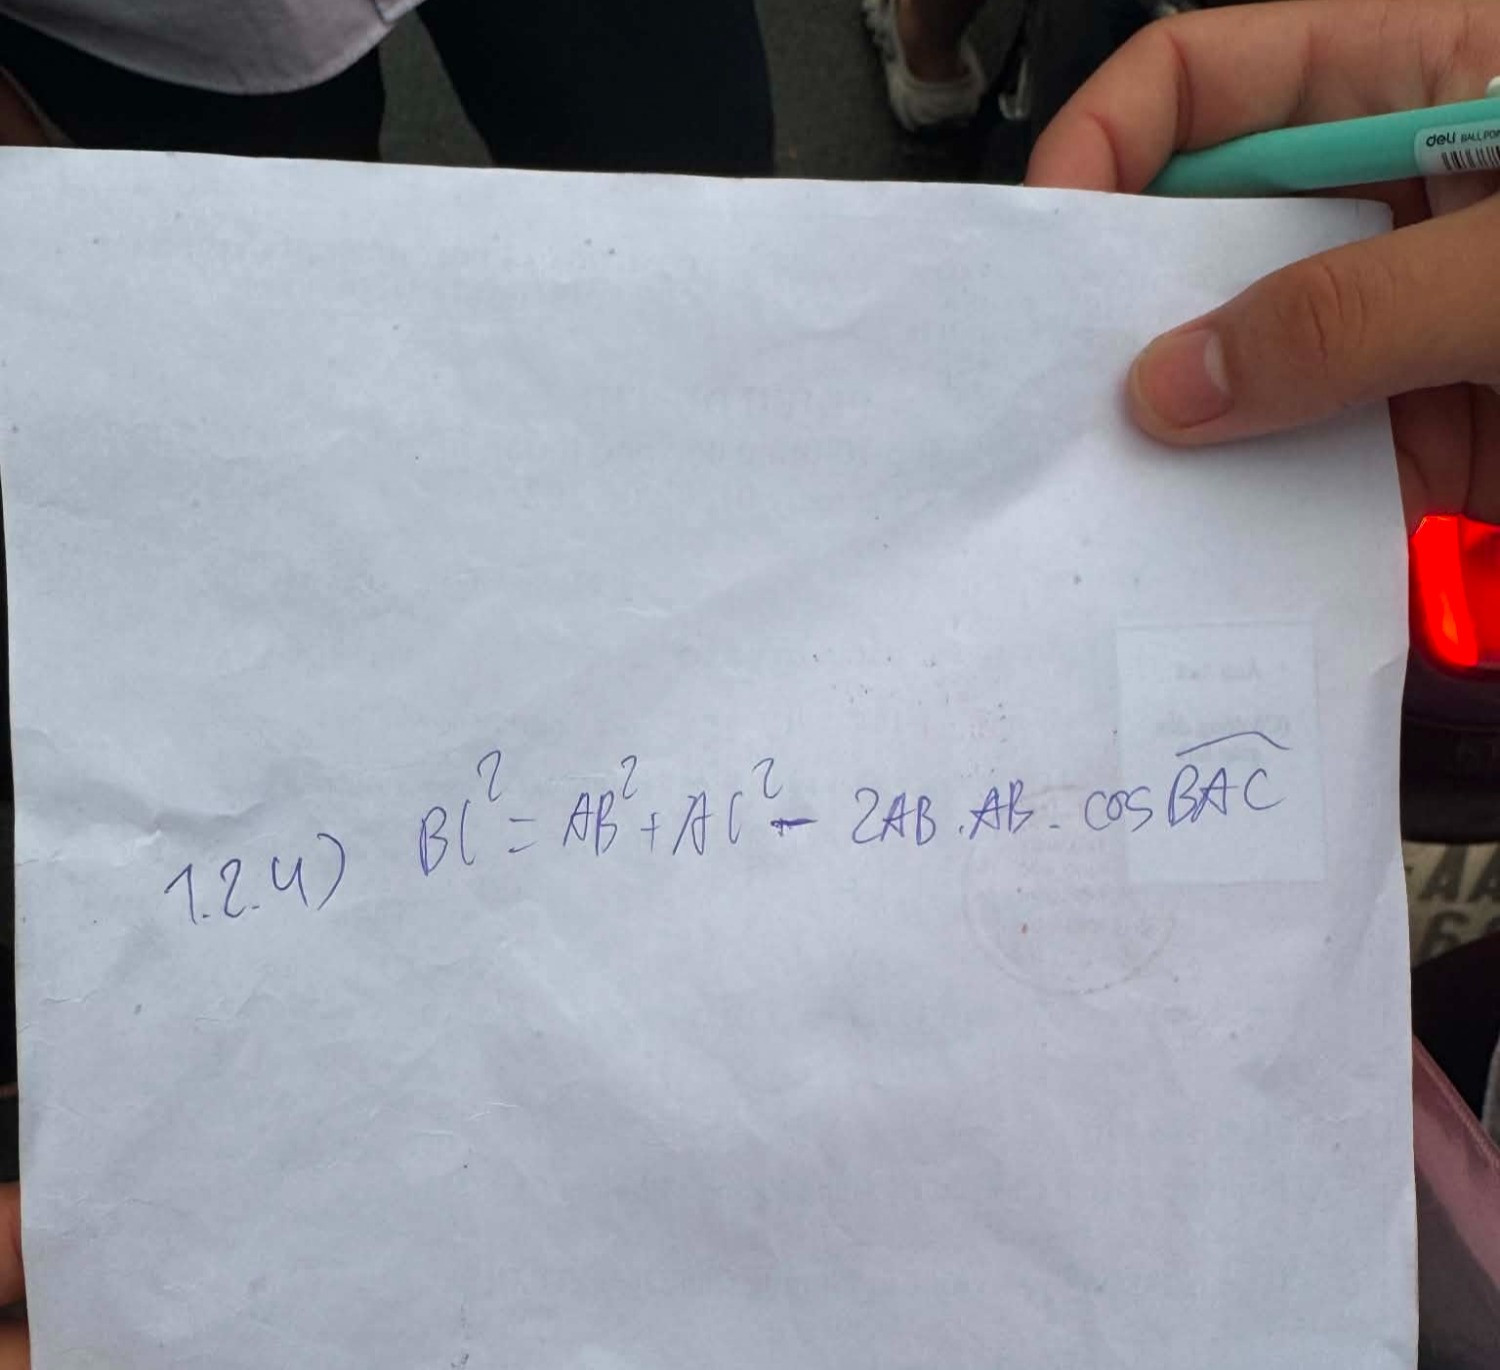 deli BALL POI
1.2.4) BC² = AB² + AC² - 2AB . AB . cos \widehat{BAC}
AA